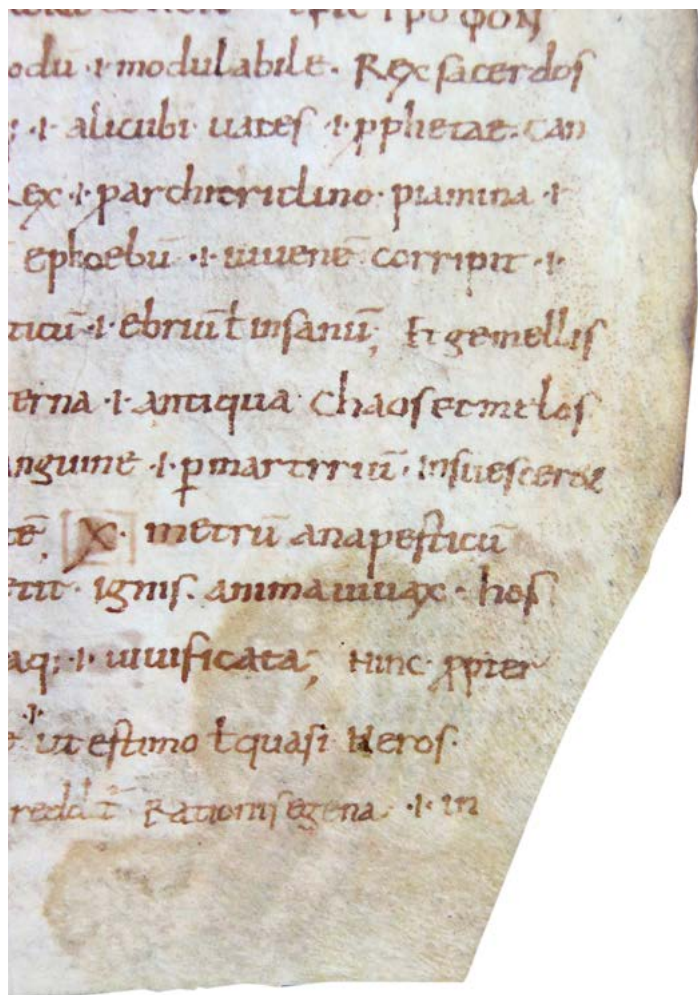 odū ·i· modulabile. Rex sacerdos
·i· alicubi uates ·i· p̄phetae. Can
Rex ·i· parchitriclino· piamina ·i·
ephoebū ·i· iuuenē corripit ·i·
ticū ·i· ebriū ł insanū; Et gemellis
erna ·i· antiqua Chaos et melos
nguine ·i· ꝑ martyriū· Insuescere
tē; X· metrū anapesticū
etit· ignis. anima uiuax· hos
aq; ·i· uiuificata; Hinc· ꝓpter
·i· ut estimo ł quasi Heros.
reddit̄ Rationis egena ·i· in